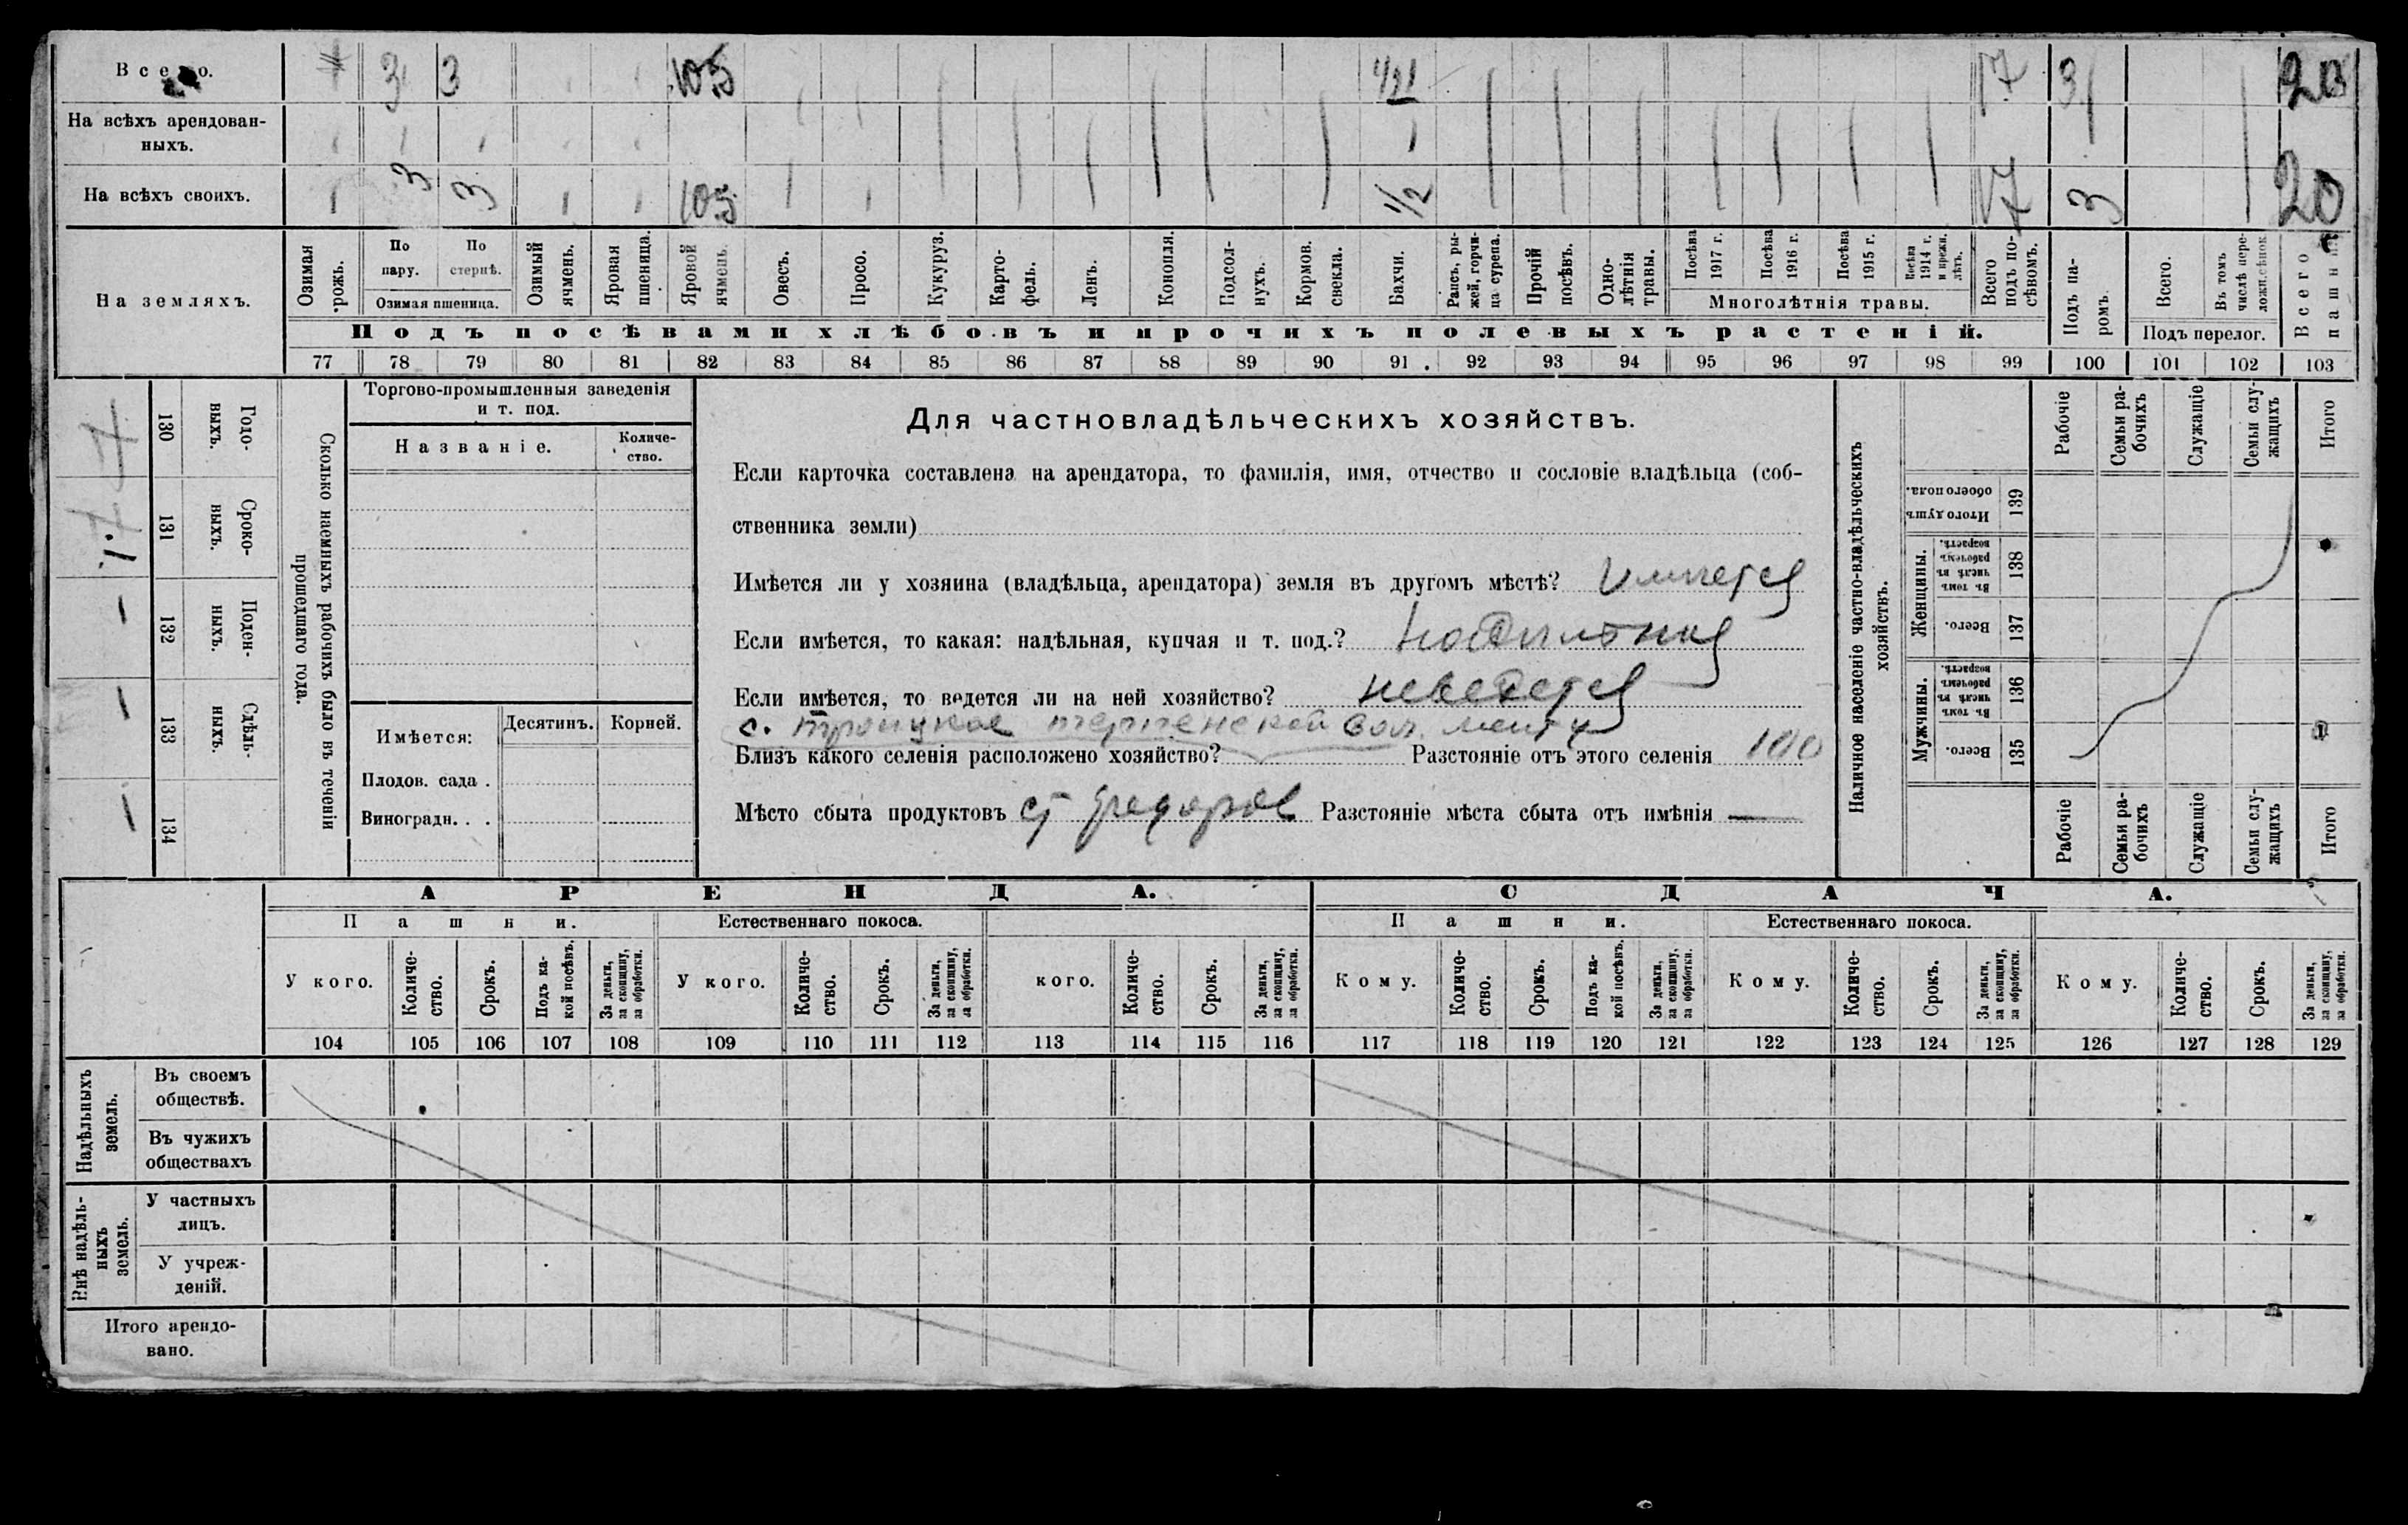 Всего. 3 3 10,5 1/2 17 3 20
На всѣхъ арендован-
ныхъ.
На всѣхъ своихъ. 3 3 10,5 1/2 17 3 20
На земляхъ.
Озимая рожь.
По пару.
По стернѣ.
Озимая пшеница.
Озимый ячмень.
Яровая пшеница.
Яровой ячмень.
Овесъ.
Просо.
Кукуруз.
Карто-
фель.
Ленъ.
Конопля.
Подсол-
нухъ.
Кормов. свекла.
Бахчи.
Рапсъ, ры-
жей, горчи-
ца сурепа.
Прочій посѣвъ.
Одно-
лѣтнія травы.
Посѣва 1917 г.
Посѣва 1916 г.
Посѣва 1915 г.
Посѣва 1914 г. и прежн. лѣтъ.
Многолѣтнія травы.
Всего подъ по-
сѣвомъ.
Подъ па-
ромъ.
Всего.
Въ томъ числѣ пере-
ложн. сѣнок
Подъ перелог.
Всего пашни
Подъ посѣвами хлѣбовъ и прочихъ полевыхъ растеній.
77 78 79 80 81 82 83 84 85 86 87 88 89 90 91 92 93 94 95 96 97 98 99 100 101 102 103
Годо-
выхъ.
130
Сроко-
ныхъ.
131
Поден-
ныхъ.
132
Сдѣль-
ныхъ.
133
134
Сколько наемныхъ рабочихъ было въ теченіи
прошедшаго года.
Торгово-промышленныя заведенія
и т. под.
Названіе.
Количе-
ство.
Имѣется:
Десятинъ.
Корней.
Плодов. сада .
Виноградн. . .
Для частновладѣльческихъ хозяйствъ.
Если карточка составлена на арендатора, то фамилія, имя, отчество и сословіе владѣльца (соб-
ственника земли)
Имѣется ли у хозяина (владѣльца, арендатора) земля въ другомъ мѣстѣ? Имѣется
Если имѣется, то какая: надѣльная, купчая и т. под.? надѣльная
Если имѣется, то ведется ли на ней хозяйство? неведется
с. Троицкое
Близъ какого селенія расположено хозяйство? Разстояніе отъ этого селенія 100
Мѣсто сбыта продуктовъ ст Разстояніе мѣста сбыта отъ имѣнія —
Наличное населеніе частно-владѣльческихъ
хозяйствъ.
Мужчины.
Всего.
135
Въ томъ числѣ въ рабочемъ возрастѣ.
136
Женщины.
Всего.
137
Въ томъ числѣ въ рабочемъ возрастѣ.
138
Итого душъ обоего пола.
139
Рабочіе
Семьи ра-
бочихъ
Служащіе
Семьи слу-
жащихъ
Итого
Рабочіе
Семьи ра-
бочихъ
Служащіе
Семьи слу-
жащихъ
Итого
АРЕНДА. СДАЧА.
Пашни. Естественнаго покоса. Пашни. Естественнаго покоса.
У кого.
Количе-
ство.
Срокъ.
Подъ ка-
кой посѣвъ.
За деньги, за скопщину, за обработки.
У кого.
Количе-
ство.
Срокъ.
За деньги, за скопщину, за обработки.
кого.
Количе-
ство.
Срокъ.
За деньги, за скопщину, за обработки.
Кому.
Количе-
ство.
Срокъ.
Подъ ка-
кой посѣвъ.
За деньги, за скопщину, за обработки.
Кому.
Количе-
ство.
Срокъ.
За деньги, за скопщину, за обработки.
Кому.
Количе-
ство.
Срокъ.
За деньги, за скопщину, за обработки.
104 105 106 107 108 109 110 111 112 113 114 115 116 117 118 119 120 121 122 123 124 125 126 127 128 129
Надѣльныхъ
земель.
Въ своемъ
обществѣ.
Въ чужихъ
обществахъ
Внѣ надѣль-
ныхъ
земель.
У частныхъ
лицъ.
У учреж-
деній.
Итого арендо-
вано.